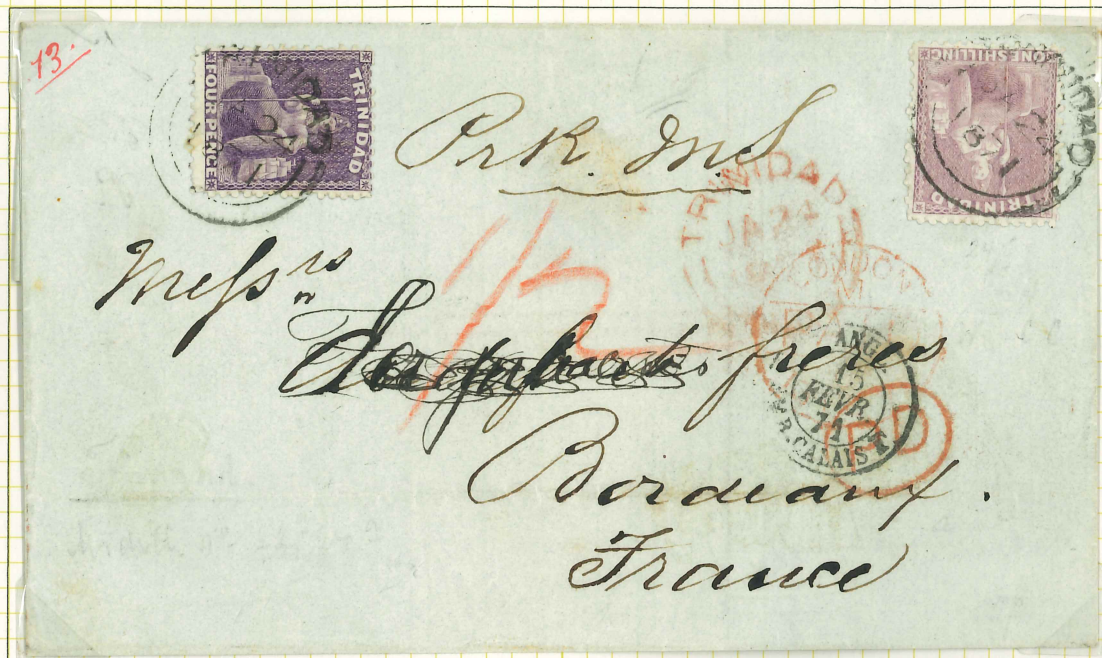 13.
TRINIDAD
FOUR PENCE
TRINIDAD
24
ONE SHILLING
TRINIDAD
TRINIDAD
JA 24
1871
Pr R. M S
TRINIDAD
JA 24
LONDON
Messrs
1/2
freres
ANGL.
15
FEVR.
71
CALAIS
PD
Bordeaux.
France